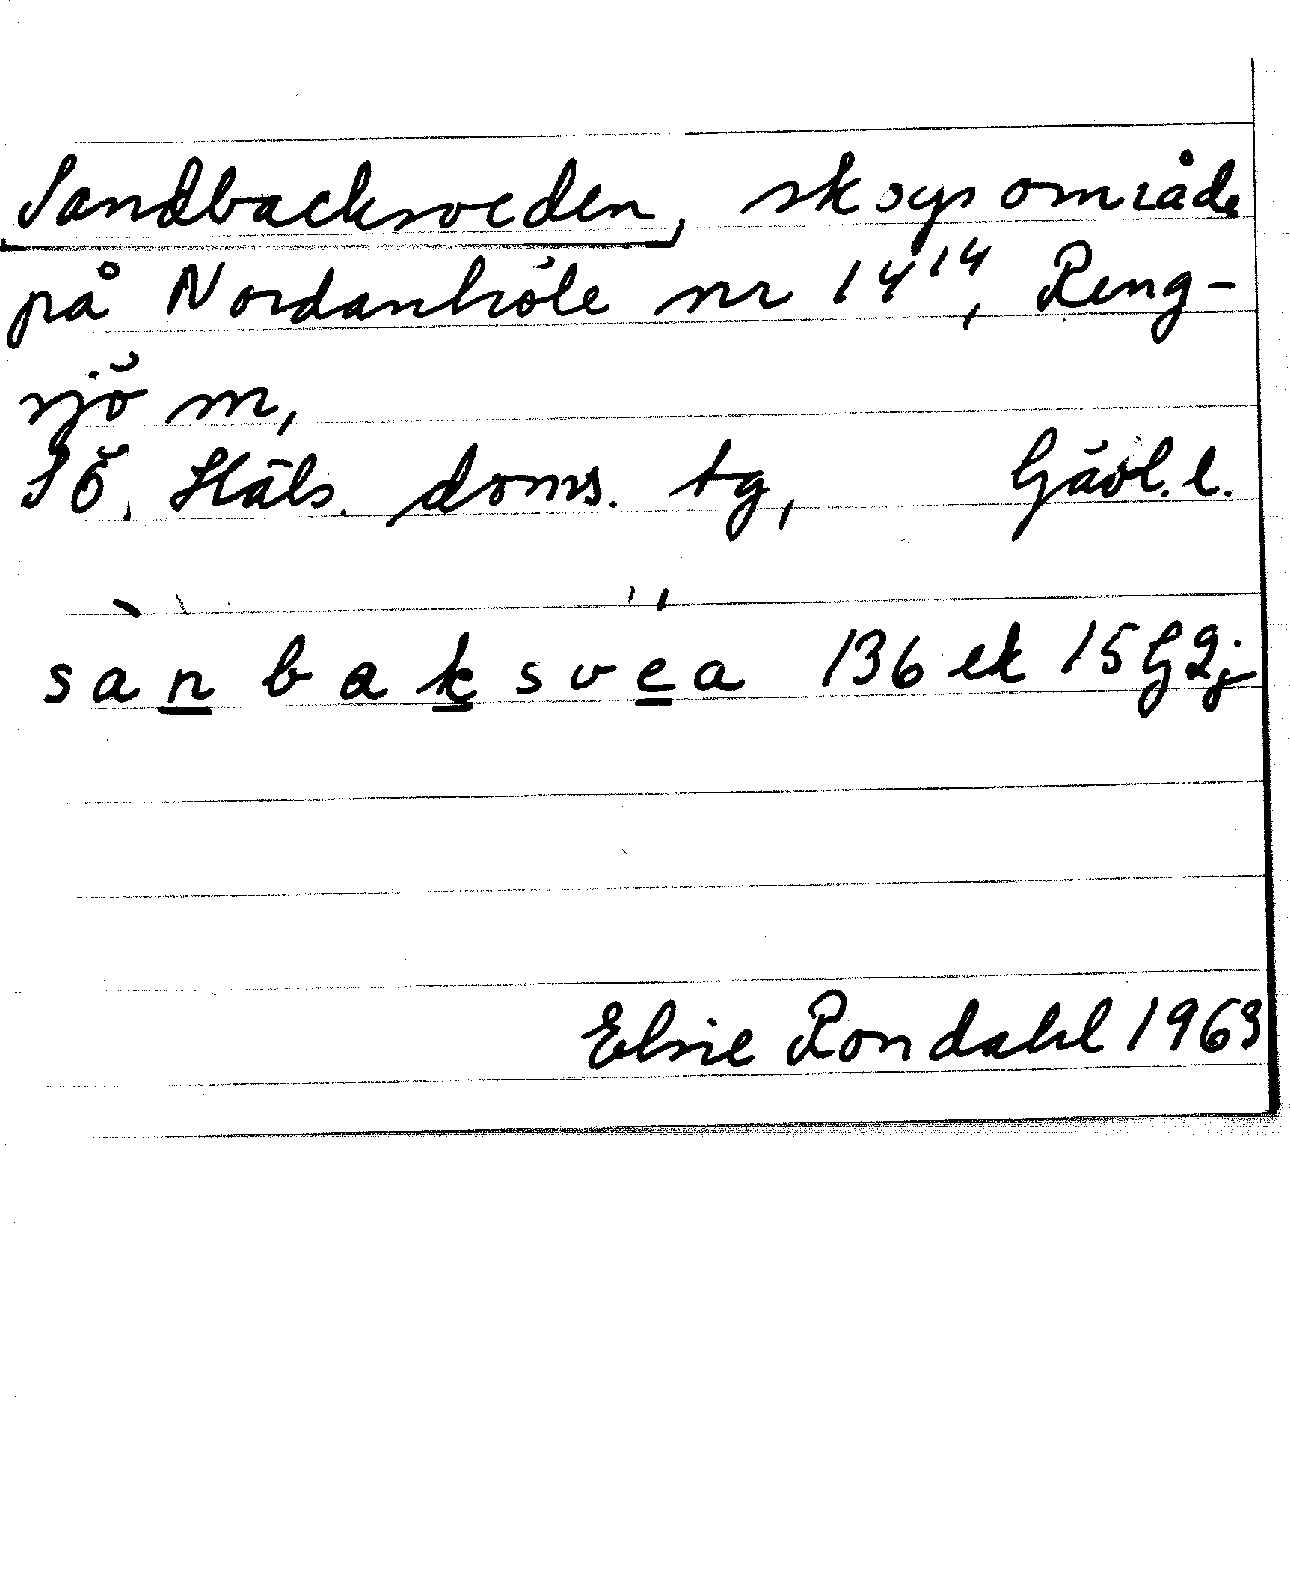 Sandbacksveden, skogsområde
på Nordanhöle nr 14¹⁴, Reng-
sjö sn,
SÖ. Häls. doms. tg, Gävl. l.
sànbaksvéa 136 ek 15G2j
Elsie Rondahl 1963